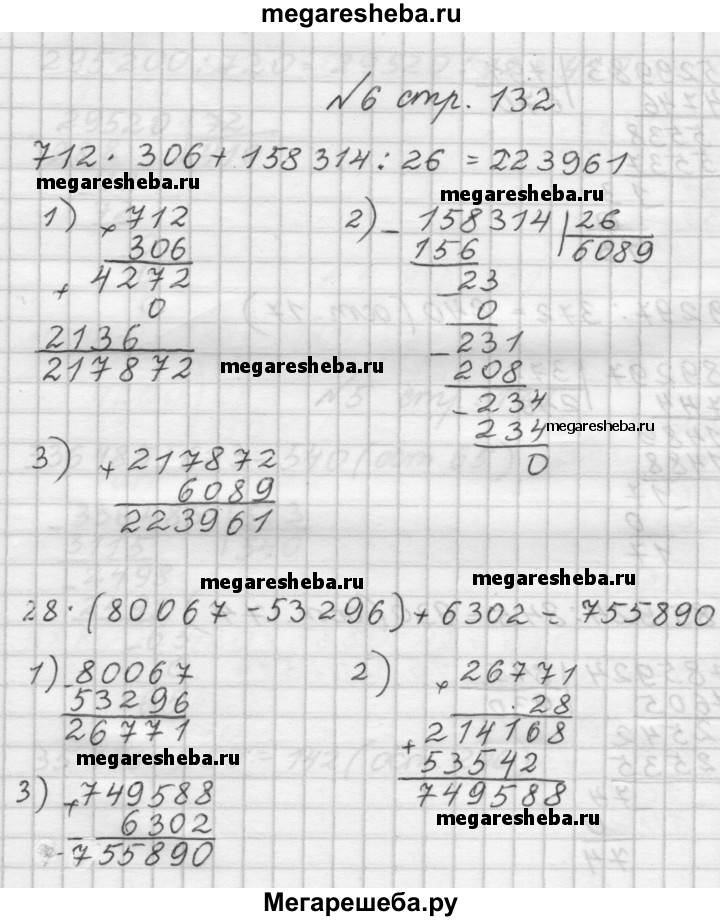 megaresheba.ru
№6 стр. 132
712 · 306 + 158314 : 26 = 223961
megaresheba.ru
megaresheba.ru
1) × 712
306
+ 4272
0
2136
217872
2) - 158314 | 26
156 6089
- 23
0
- 231
208
- 234
234
0
megaresheba.ru
megaresheba.ru
3) + 217872
6089
223961
megaresheba.ru
megaresheba.ru
28 · (80067 - 53296) + 6302 = 755890
1) - 80067
53296
26771
2) × 26771
28
+ 214168
53542
749588
megaresheba.ru
3) + 749588
6302
755890
megaresheba.ru
Мегарешеба.ру